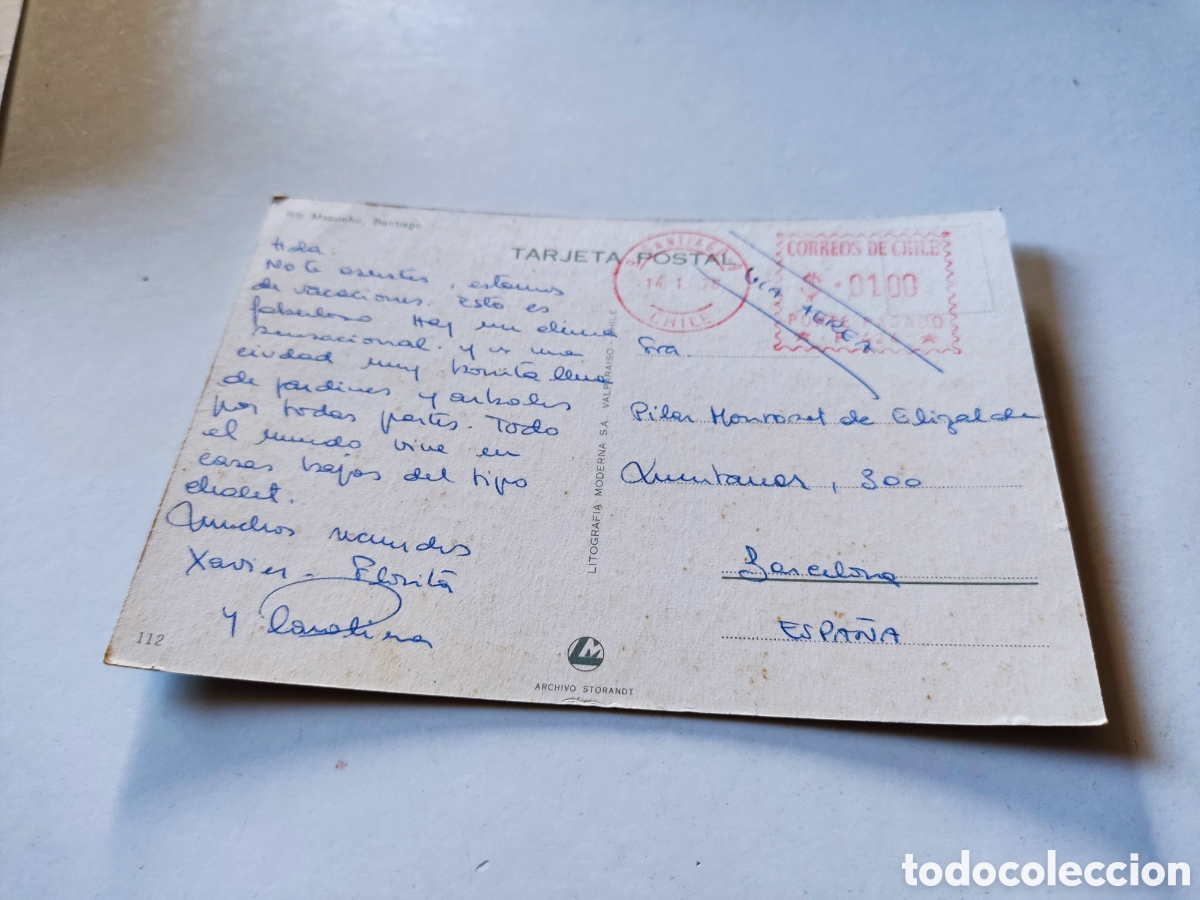 Río Mapocho, Santiago
TARJETA POSTAL
SANTIAGO
14 1 76
CHILE
CORREOS DE CHILE
$ 01.00
PORTE PAGADO
VIA AEREA
Hola.
No te asustes, estamos
de vacaciones. Esto es
fabuloso. Hay un clima
sensacional. y es una
ciudad muy bonita llena
de jardines y arboles
por todas partes. Todo
el mundo vive en
casas bajas del tipo
chalet.
Muchos recuerdos
Xavier - Florita
y Carolina
112
LITOGRAFIA MODERNA S.A. VALPARAISO - CHILE
Sra
Pilar de Elizalde
Muntaner, 300
Barcelona
ESPAÑA
ARCHIVO STORANDT
todocoleccion